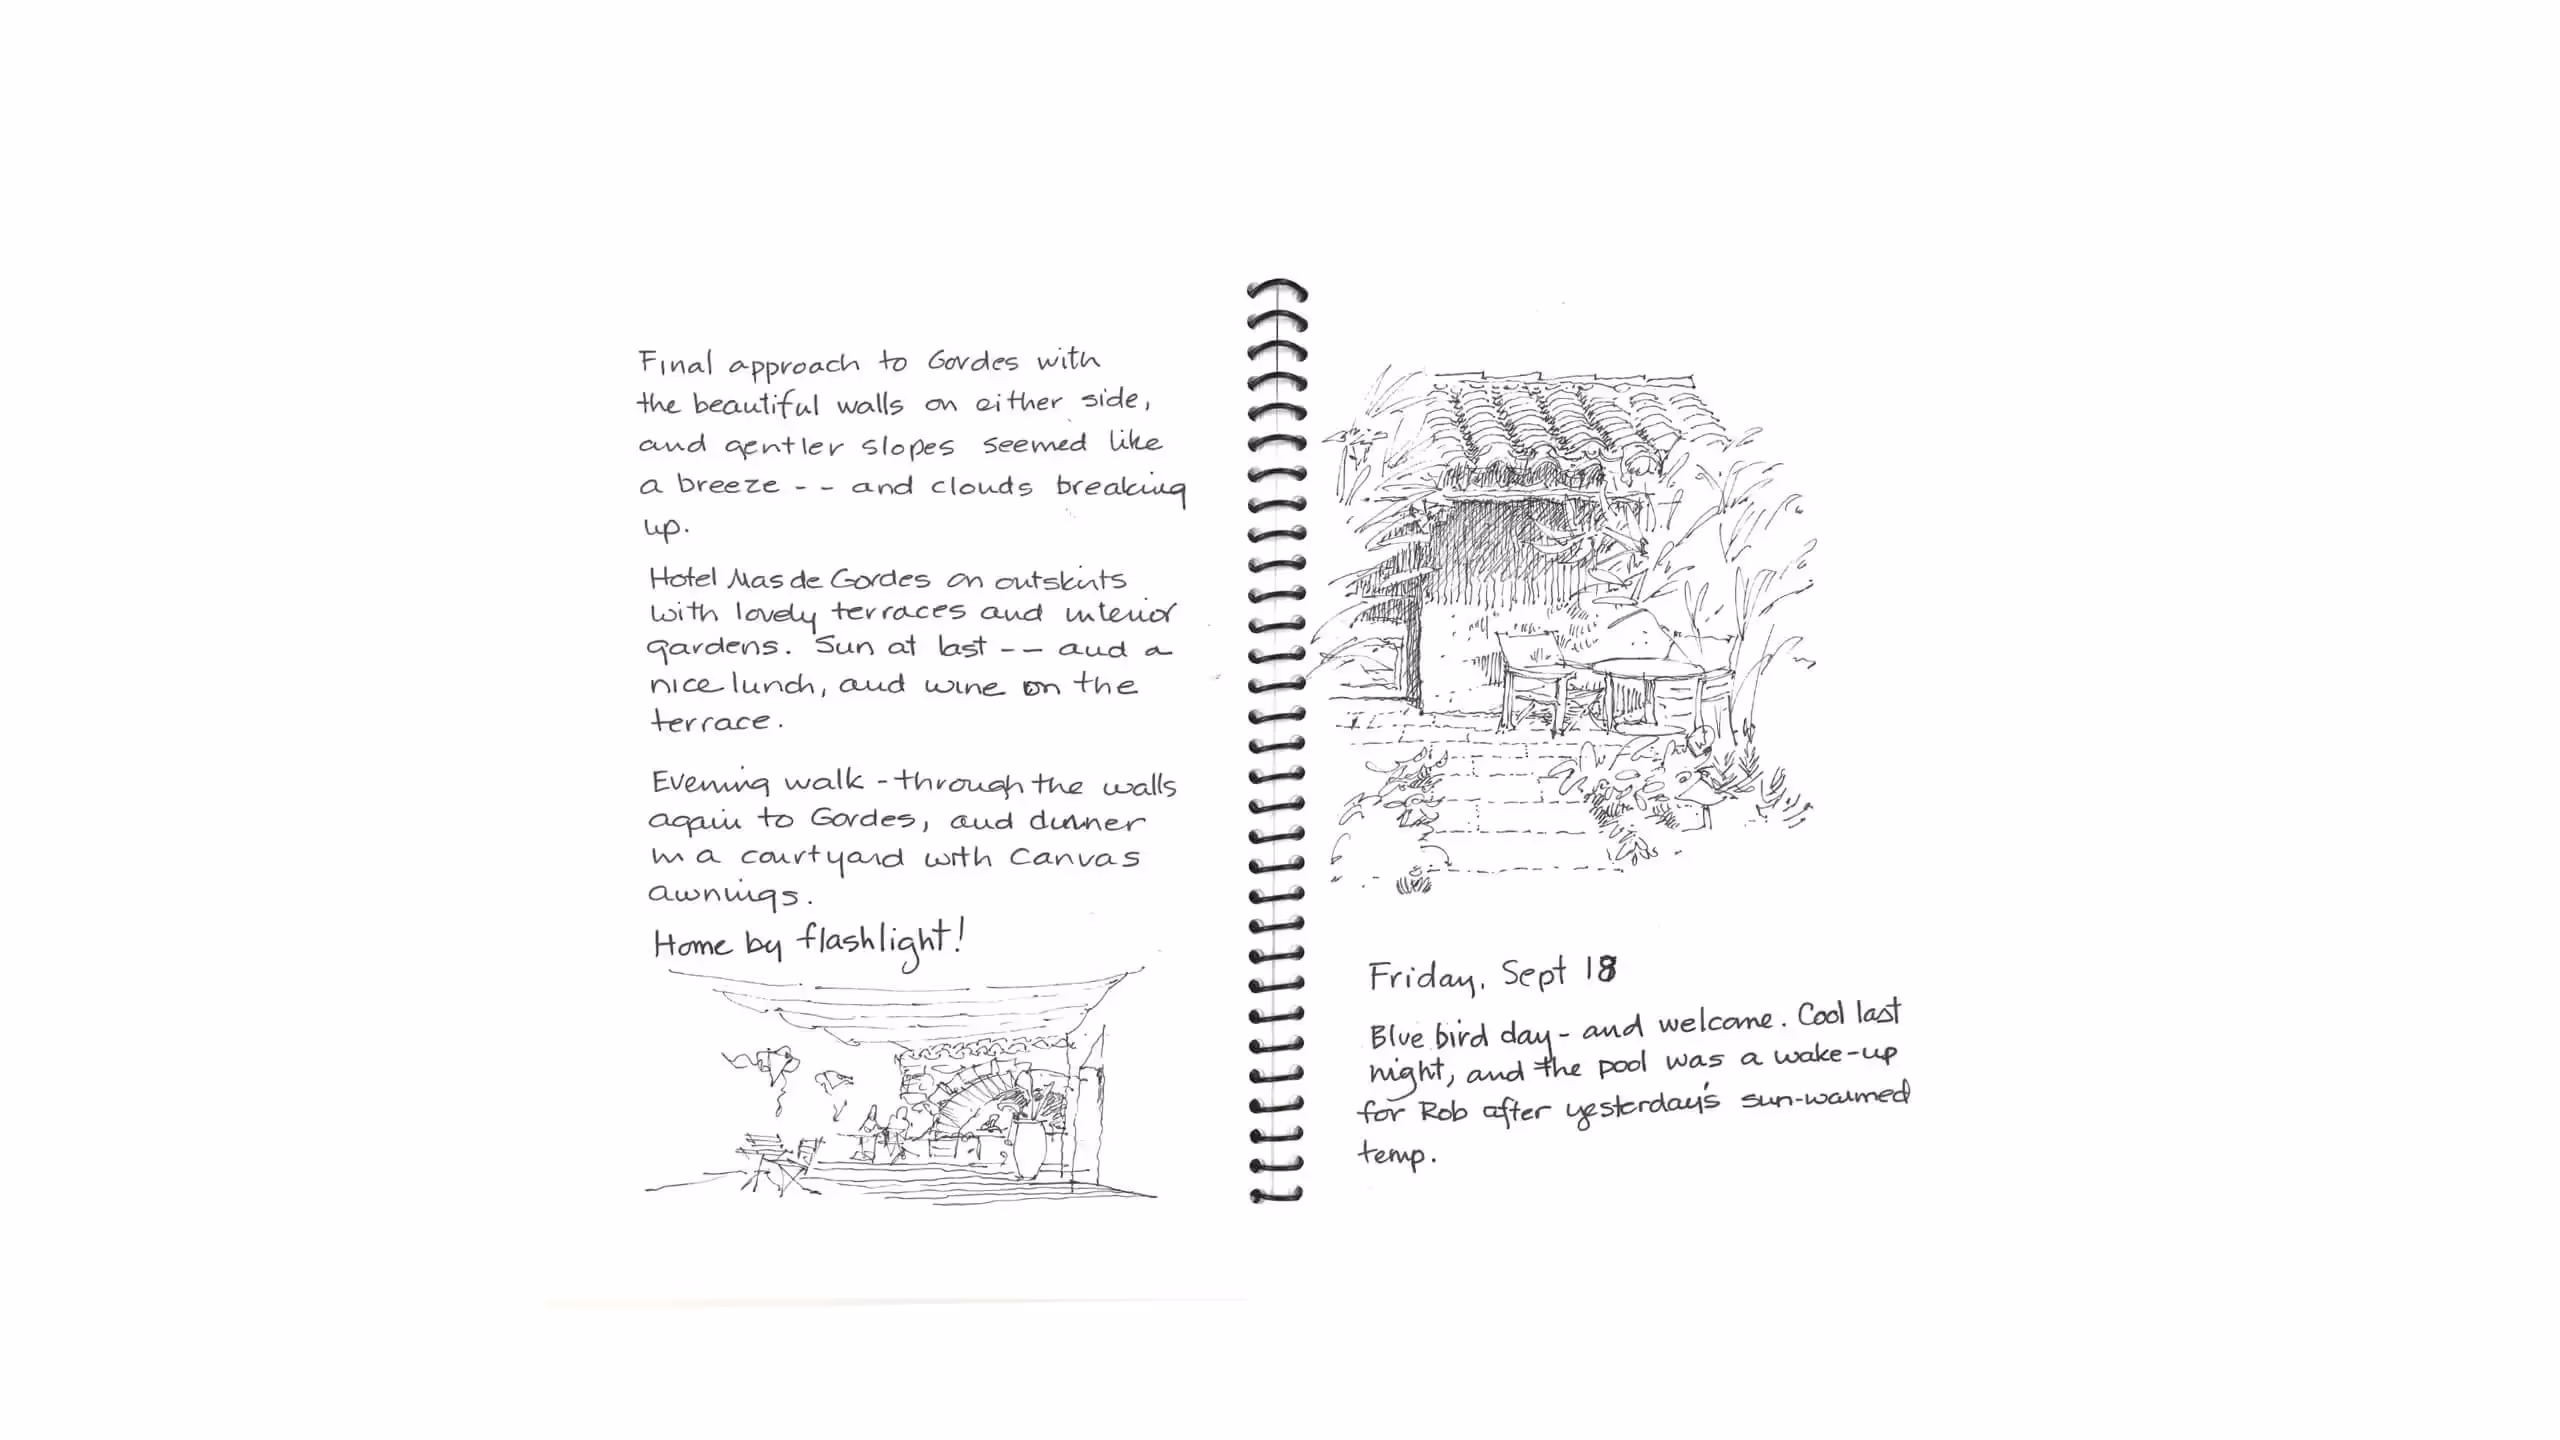 Final approach to Gordes with
the beautiful walls on either side,
and gentler slopes seemed like
a breeze -- and clouds breaking
up.
Hotel Mas de Gordes on outskirts
with lovely terraces and interior
gardens. Sun at last -- and a
nice lunch, and wine on the
terrace.
Evening walk - through the walls
again to Gordes, and dinner
in a courtyard with canvas
awnings.
Home by flashlight!
Friday, Sept 18
Blue bird day - and welcome. Cool last
night, and the pool was a wake-up
for Rob after yesterday's sun-warmed
temp.